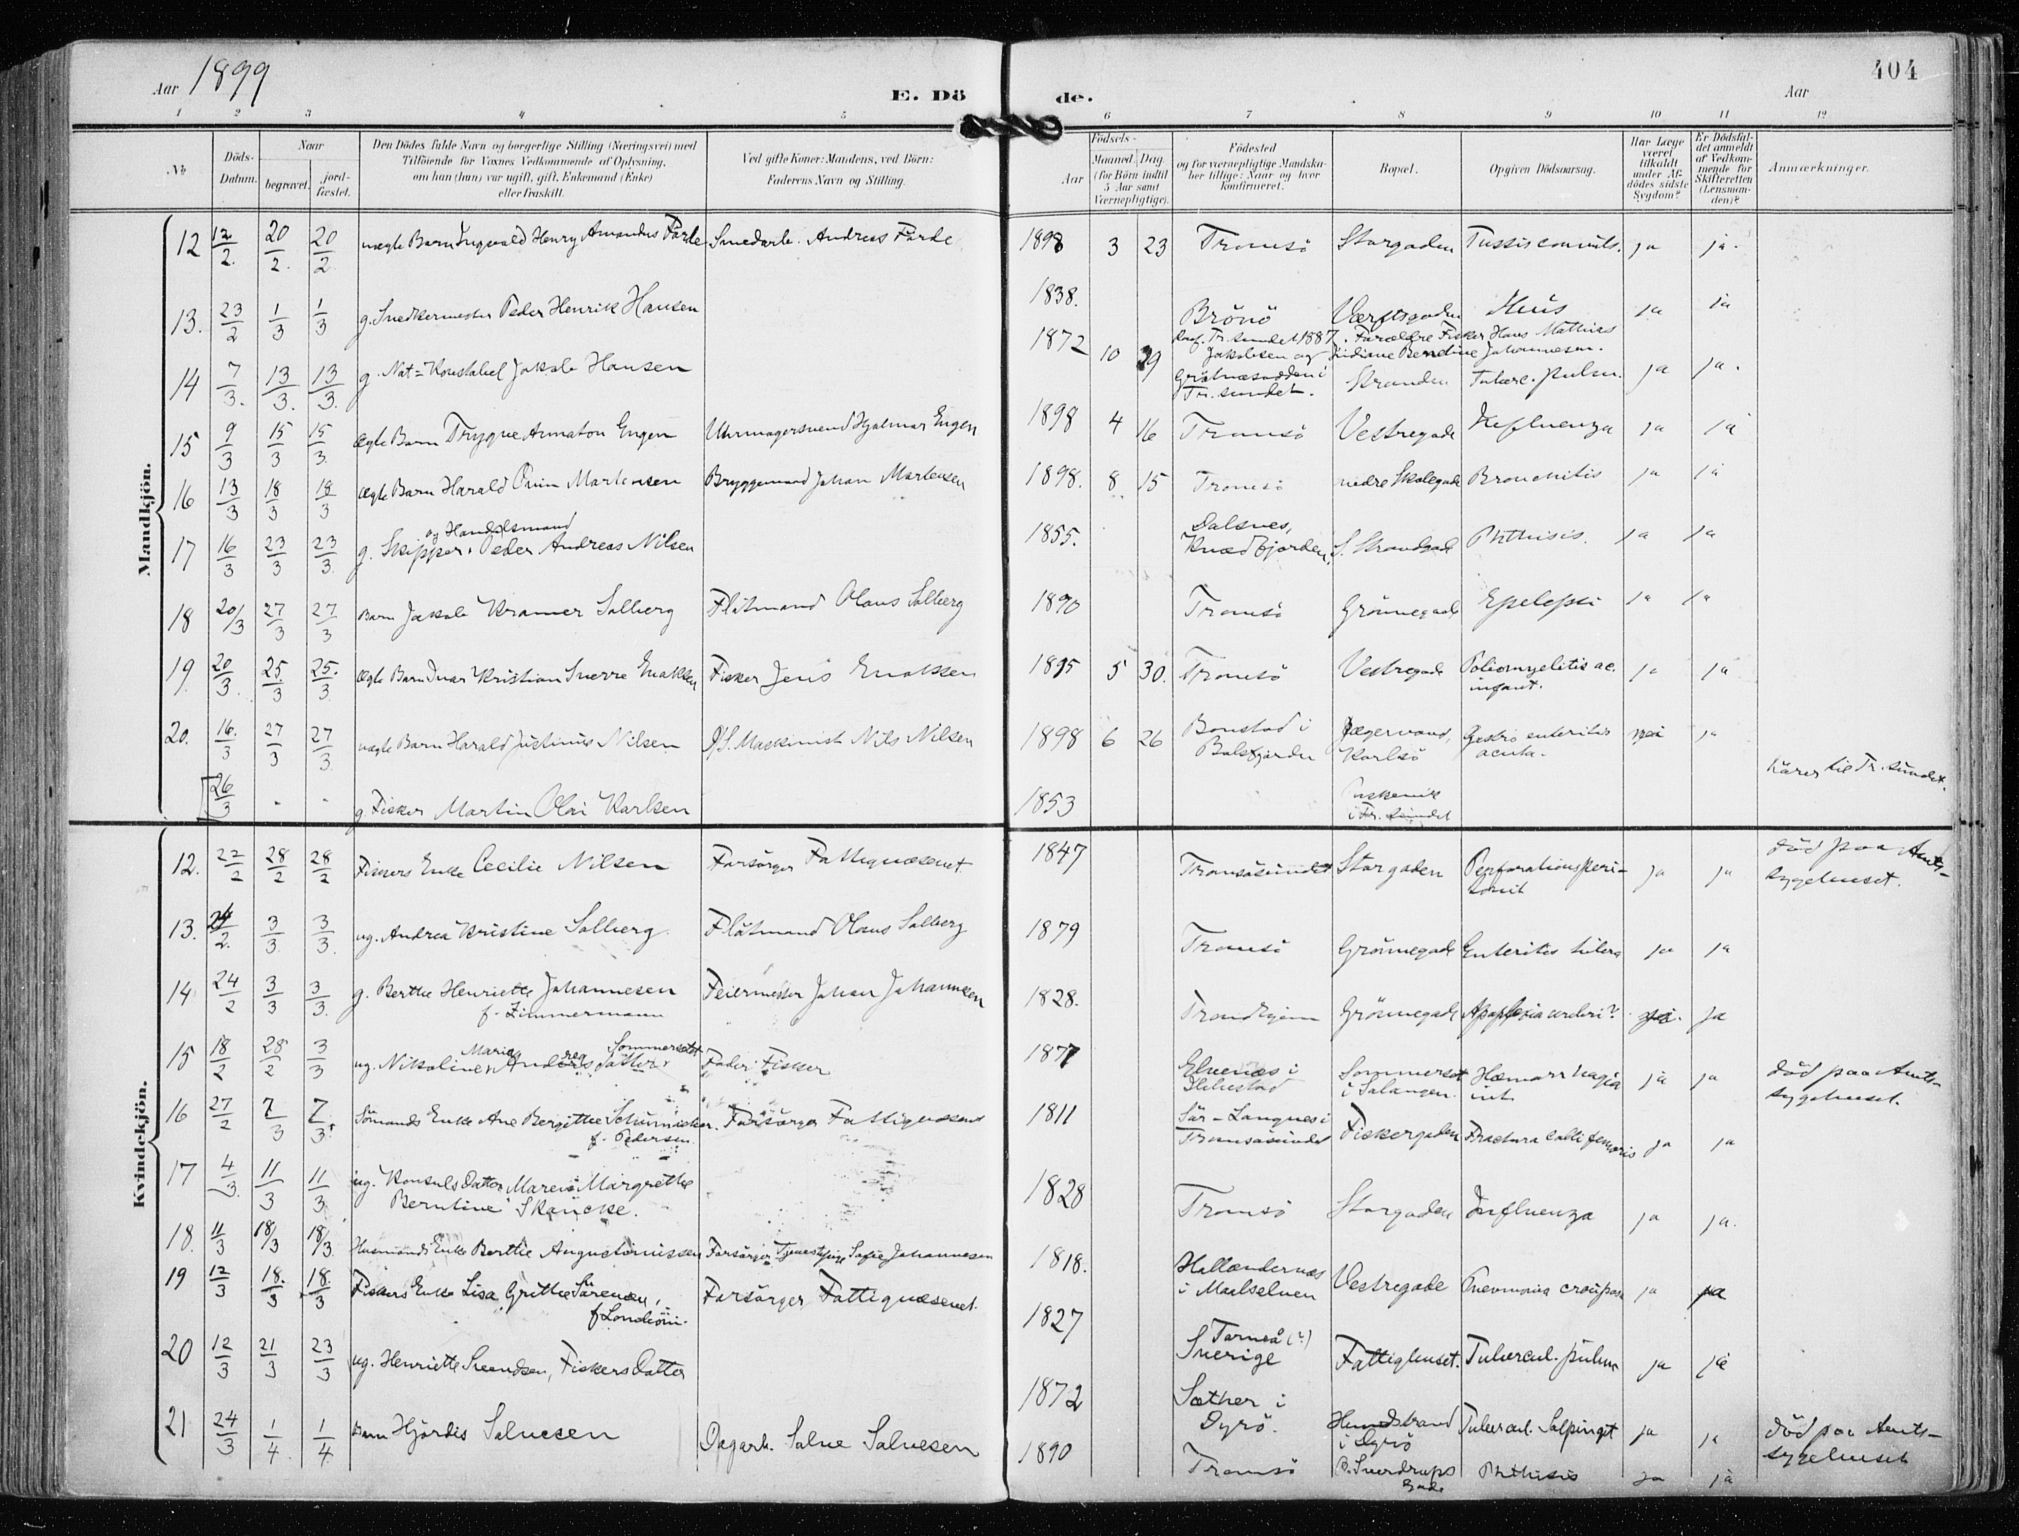 404
Aar 1899
E. Dö de.
Aar
1 2 3 4 5 6 7 8 9 10 11 12
No
Döds-Datum.
Naar
begravet.
jordfæstet.
Den Dödes fulde Navn og borgerlige Stilling (Næringsvei) med
Tilföiende for Voxnes Vedkommende af Oplysning,
om han (hun) var ugift, gift, Enkemand (Enke)
eller fraskilt.
Ved gifte Koner: Mandens, ved Börn:
Faderens Navn og Stilling.
Födsels-
Aar
Maaned. Dag.
(for Börn indtil
5 Aar samt
Værnepligtige).
Födested
og for værnepligtige Mandskaber tillige: Naar og hvor
konfirmeret.
Bopæl.
Opgiven Dödsaarsag.
Har Læge
været
tilkaldt
under Afdödes sidste
Sygdom?
Er Dödsfaldet anmeldt
af Vedkommende for
Skifteretten
(Lensmanden)?
Anmærkninger.
Mandkjön.
12 12/2 20/2 20/2 uægte Barn Ingvald Henry Amandus Förde Smedarb. Andreas Förde 1898 3 23 Tromsö Storgaden Tussis convuls. ja ja
13. 23/2 1/3 1/3 g. Snedkermester Peder Henrik Hansen 1838. Brönö Værftsgaden ja ja
14 7/3 13/3 13/3 g. Nat-Konstabel Jakob Hansen 1872 10 29 Konf. Tr.sundet 1887. Forældre Fisker Hans Mathias
Jakobsen og Lidiane Berntine Johannesen.
Tr.sundet. Stranden Tuberc. pulm. ja ja.
15 9/3 15/3 15/3 ægte Barn Trygve Armaton Engen Uhrmagersvend Hjalmar Engen 1898 4 16 Tromsö Vestregade Influenza ja ja
16 13/3 18/3 18/3 ægte Barn Harald Martensen Bryggemand Johan Martensen 1898. 8 15 Tromsö nedre Skolegade Bronchitis ja ja
og Handelsmand
17 16/3 23/3 23/3 g. Skipper Peder Andreas Nilsen 1855. Dalsnes,
Kvædfjorden S. Strandgade Phthisis. ja ja
18 20/3 27/3 27/3 Barn Jakob Kramer Solberg Flötmand Olaus Solberg 1890 Tromsö Grönnegade Epelepsi ja ja
19. 20/3 25/3 25/3 ægte Barn Ivar Kristian Sverre Enoksen Fisker Jens Enokssen 1895 5 30. Tromsö Vestregade Poliomyelitis ac.
infant. ja ja
20. 16/3 27/3 27/3 uægte Barn Harald Justinus Nilsen D/S. Maskinist Nils Nilsen 1898 6 26 Bonstad i
Balsfjorden Jægervand,
Karlsö Gastro enteritis
acuta. nei ja
26/3 - - g. Fisker Martin Olai Karlsen 1853 i Tr. sundet hörer til Tr. sundet.
Kvindekjön.
12. 22/2 28/2 28/2 Fiskers Enke Cecilie Nilsen Forsörger Fattigvæsenet 1847 Tromsösundet Storgaden Perforationsperitonit ja ja död paa Amtssygehuset.
13. 24/2 3/3 3/3 ug. Andrea Kristine Solberg. Flötmand Olaus Solberg 1879 Tromsö Grönnegade Enteritis tuberc ja ja
14 24/2 3/3 3/3 g. Berthe Henriette Johannesen
f. Zimmermann Feiermester Johan Johannesen 1828. Trondhjem Grönnegade Apoplexia cerebri? ja. ja
15 18/2 28/2 3/3 ug. Nikoline Marie Andrea Sommerset Fader: Fisker 1877 Elvenæs i
Ibbestad Sommerset
i Salangen. Hæmorrhagia
int. ja ja död paa Amtssygehuset.
16 27/2 7/3 7/3. Sömands Enke Ane Bergitte Schumacher.
f. Pedersen Forsörger Fattigvæsenet 1811 Sör-Langnes i
Tromsösundet Fiskergaden Fractura colli femoris ja ja
17 4/3 11/3 11/3 ug. Konsuls Datter Maren Margrethe
Berntine Skancke. 1828 Tromsö Storgaden Influenza ja ja.
18. 11/3 18/3 18/3 Husmands Enke Berthe Augustinussen Forsörger Tjenestepige Sofie Johannesen 1818. Hollændernæs
i Maalselven Vestregade Pneumonia crouposa ja ja
19 12/3 18/3 18/3 Fiskers Enke Lisa Grithe Sörensen,
f. Forsörger Fattigvæsenet. 1827 Torneå (?)
Sverige Fattighuset. Tubercul. pulm ja ja
20 12/3 21/3 23/3 ug. Henriette Svendsen, Fiskers Datter 1872 Sæther i
Dyrö. Hundstrand
i Dyrö Tubercul. Salpingit ja ja död paa Amtssygehuset
21 24/3 1/4 1/4 Barn Hjördis Salvesen Dagarb. Salve Salvesen 1890 Tromsö Sverdrups
Gade Phthisis ja ja